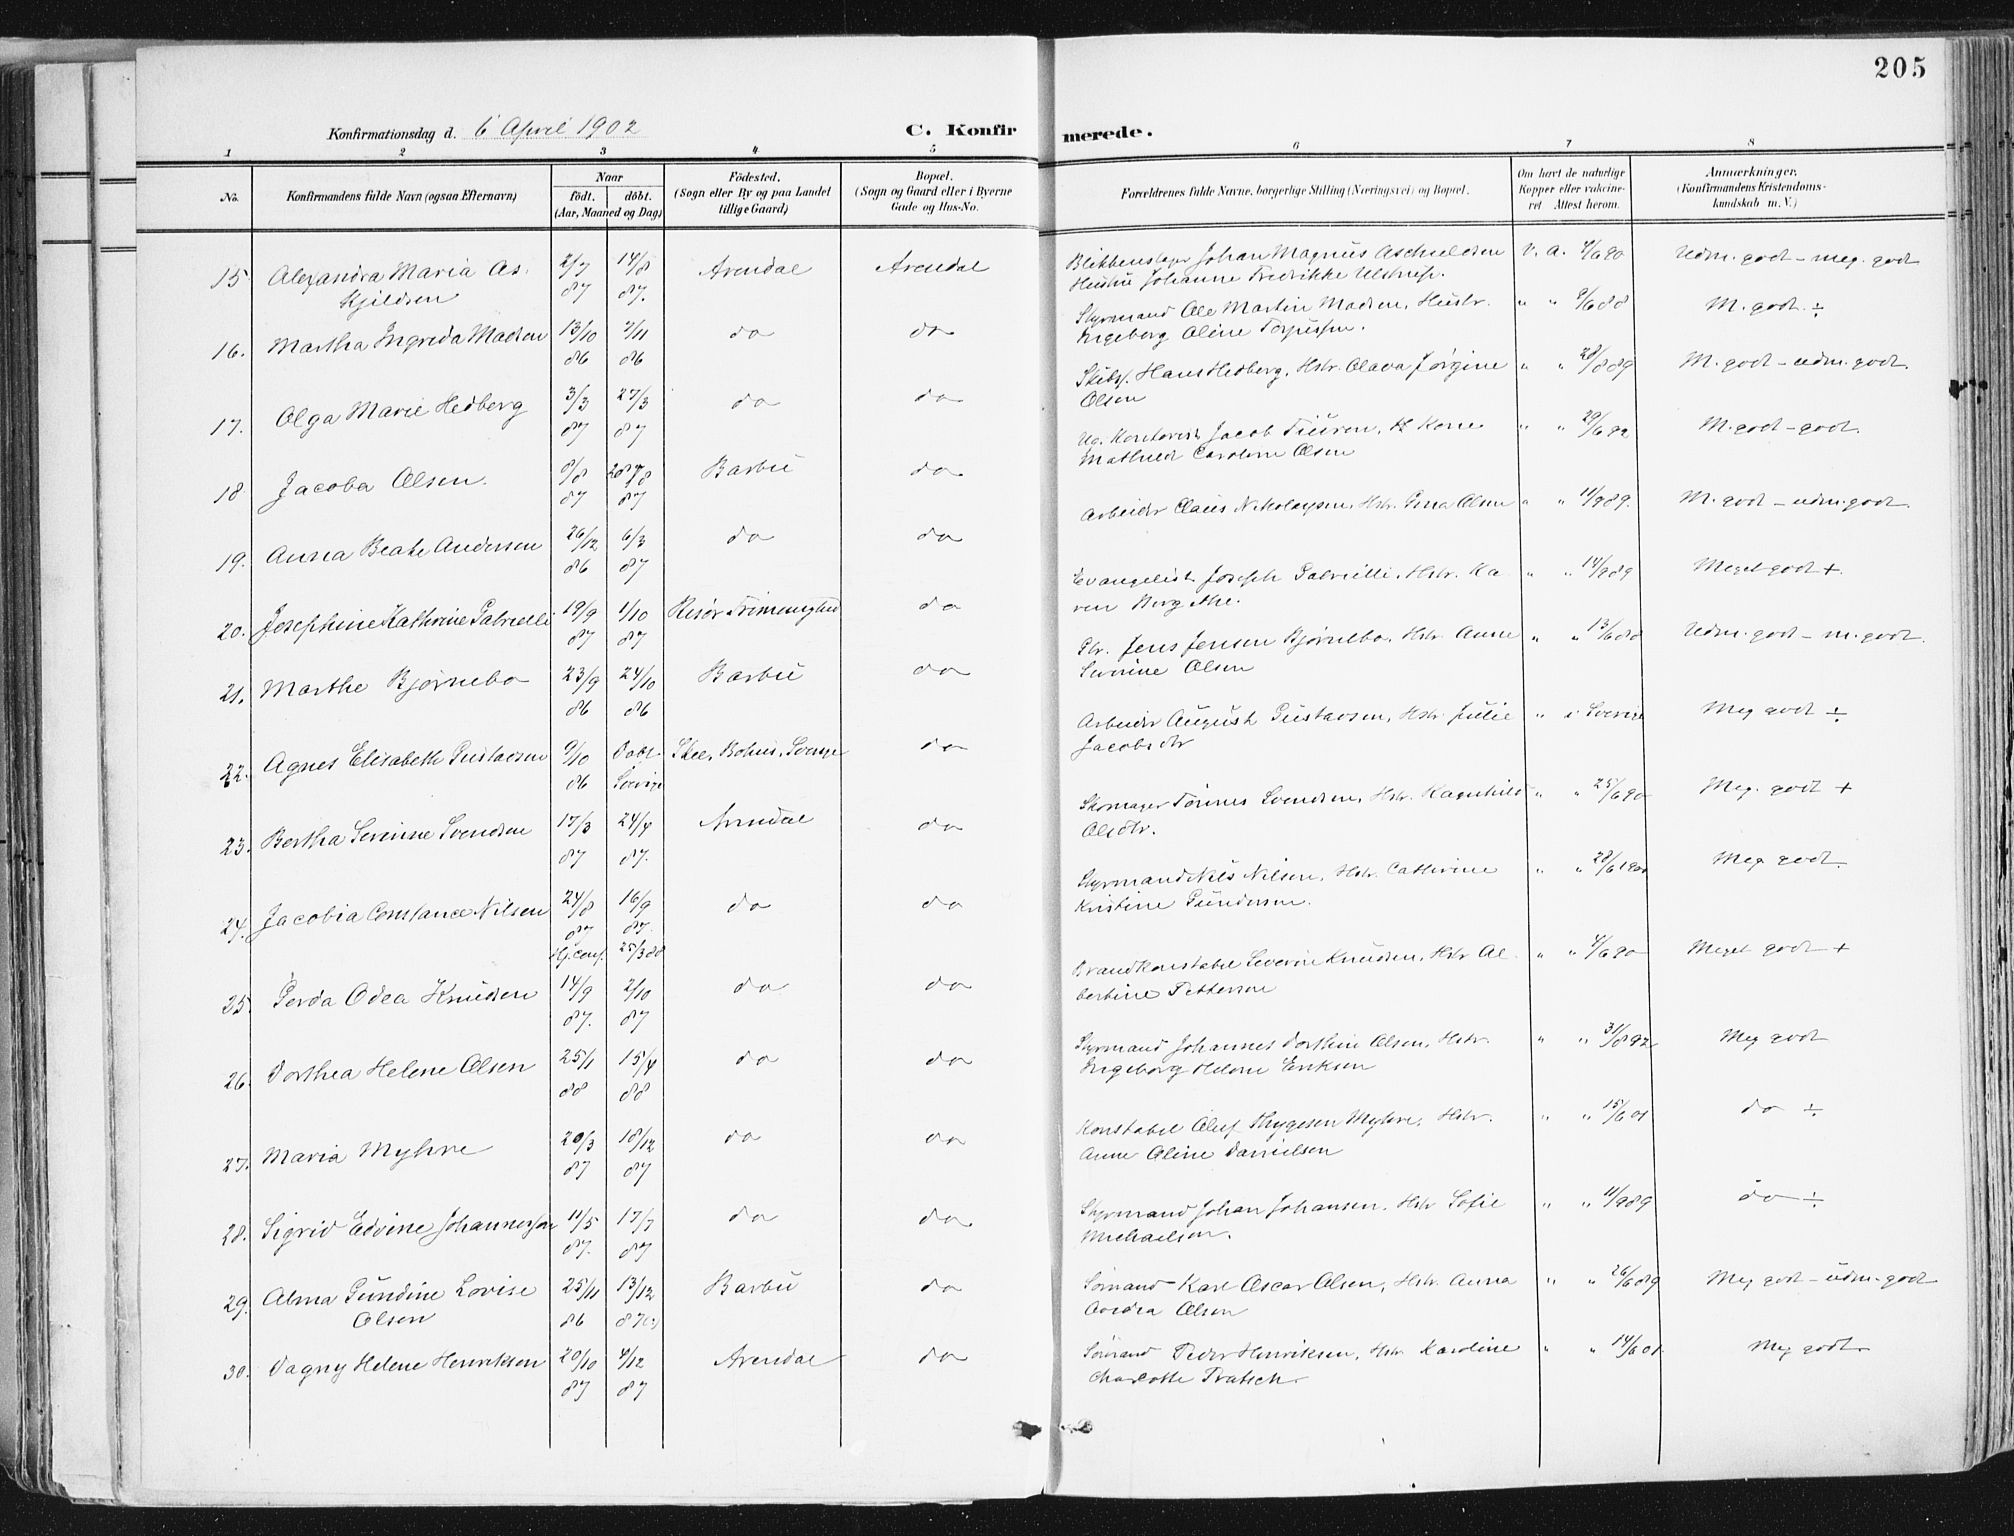 205
Konfirmationsdag d. 6 April 1902
C. Konfirmerede.
1 2 3 4 5 6 7 8
No.
Konfirmandens fulde Navn (ogsaa Efternavn)
Naar
født. døbt.
(Aar, Maaned og Dag)
Fødested.
(Sogn eller By og paa Landet
tillige Gaard)
Bopæl.
(Sogn og Gaard eller i Byerne
Gade og Hus-No.
Forældrenes fulde Navne, borgerlige Stilling (Næringsvei) og Bopæl.
Om havt de naturlige
Kopper eller vaksine-
ret Attest herom.
Anmærkninger.
(Konfirmandens Kristendoms-
kundskab m. V.)
15. Alexandra Maria As- 2/7 14/8 Arendal Arendal Blikkenslager Johan Magnus Aschieldsen V. a. 4/6 90 Udm. godt - meg. godt
kjildsen 87 87. Hustru Johanne Fredrikke Ulstrup.
16. Martha Ingrida Madsen 13/10 7/11 do do Styrmand Ole Martin Madsen, Hustr. " " 9/6 88 M. godt ÷
86 86 Ingeborg Oline
17. Olga Marie Hedberg 3/3 27/3 do do Skibsf. Hans Hedberg, Hstr. Olava Jørgine " " 28/8 89 M. godt - udm. godt.
87 87 Olsen
18. Jacoba Olsen. 8/8 Barbu do Jacob Kone " " 29/6 92 M. godt - godt.
87 87 Mathilde Caroline Olsen
19. Anna Beate Andersen 26/12 6/3 do do Arbeider Claus Nikolaysen, Hstr. Gina Olsen " " 11/9 89. M. godt - udm. godt.
86 87
20. Josephine Kathrine Gabrielli 19/9 1/10 Risør Frimenighed do Evangelist Joseph Gabrielli, Hstr. Ka- " " 14/9 89 Meget godt +.
87 87 ren
21. Marthe Bjørnebo 23/9 24/10 Barbu do Jens Jensen Bjørnebo, Hstr. Anne " " 13/6 88 Udm. godt - m. godt.
86 86 Serine Olsen
22. Agnes Elisabeth Gustavsen 9/10 Døbt Skee, Bohus, Sverige do Arbeider August Gustavsen, Hstr. Julie " i Sverige Meg godt ÷
86 Sverige Jacobsdtr
23. Bertha Serinne Svendsen 17/3 24/4 Arendal do Skomager Tønnes Svendsen, Hstr. Ragnhild " " 25/6 90 Meg. godt +
87 87. Olsdtr.
24. Jacobia Constance Nilsen 24/8 16/9 do do Styrmand Nils Nilsen, Hstr. Cathrine " " 28/6 1900 Meg godt.
87 87. Kristine Gundersen.
Hj. conf. 25/3 88
25. Gerda Odea Knudsen 14/9 2/10 do do Brandkonstabel Severin Knudsen, Hstr Al- " " 4/6 90 Meget godt +
87. 87 bertine Pettersen
26. Dorthea Helene Olsen 25/1 15/4 do do Styrmand Johannes Olsen, Hstr. " " 31/8 92 Meg godt
88 88 Ingeborg Helene Eriksen
27. Maria Myhre 20/3 18/12 do do Konstabel Oluf Thygesen Myhre, Hstr. " " 15/6 01 do ÷
87 87 Anne Oline Danielsen
28. Sigrid Edvine Johannesen 11/5 17/7 do do Styrmand Johan Johansen, Hstr Sofie " " 11/9 89 do ÷
87. 87 Michaelsen.
29. Alma Gundine Lovise 25/11 13/12 Barbu do Sømand Karl Oscar Olsen, Hstr. Anna " " 26/6 89 Meg godt - udm. godt
Olsen 86 87(?) Olsen
30. Dagny Helene Henriksen 20/10 4/12 Arendal do Sømand Peder Henriksen, Hstr Karoline " " 14/6 01 Meg godt.
87 87 Charlotte